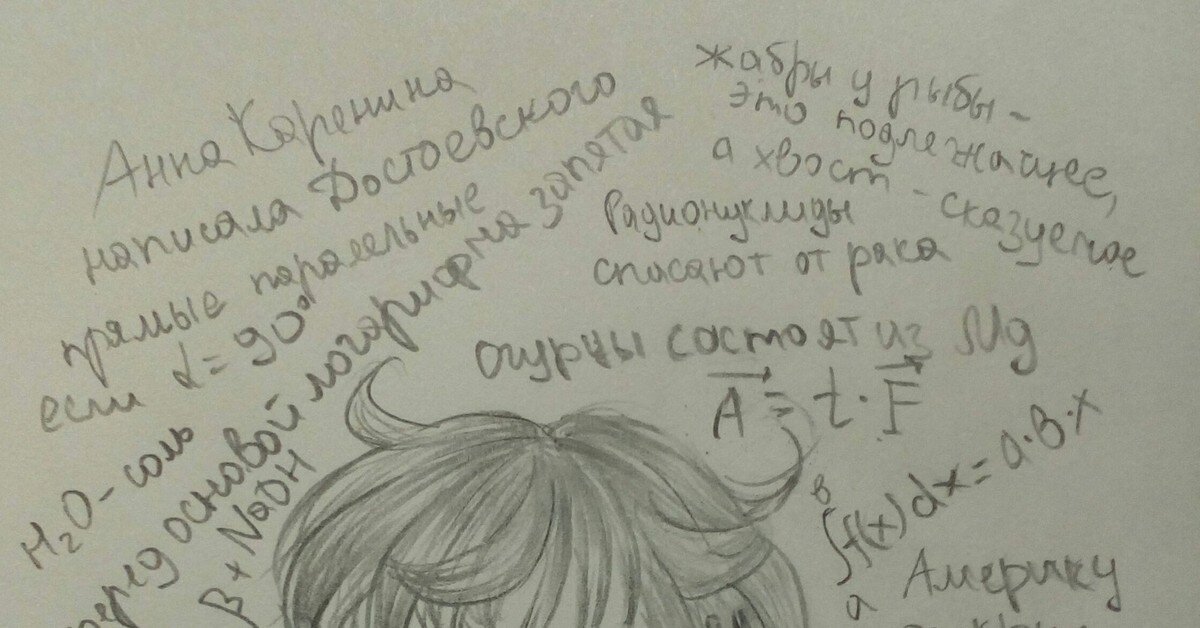 Анна Каренина
написала Достоевского
прямые паралельные
если α = 90°
H₂O - соль
перед основой логарифма запятая
β + NaOH
жабры у рыбы -
это подлежащее,
а хвост - сказуемое
Радионуклиды
спасают от рака
огурцы состоят из Mg
A⃗ = t · F⃗
∫ₐᵇ f(x) dx = a·b·x
Америку